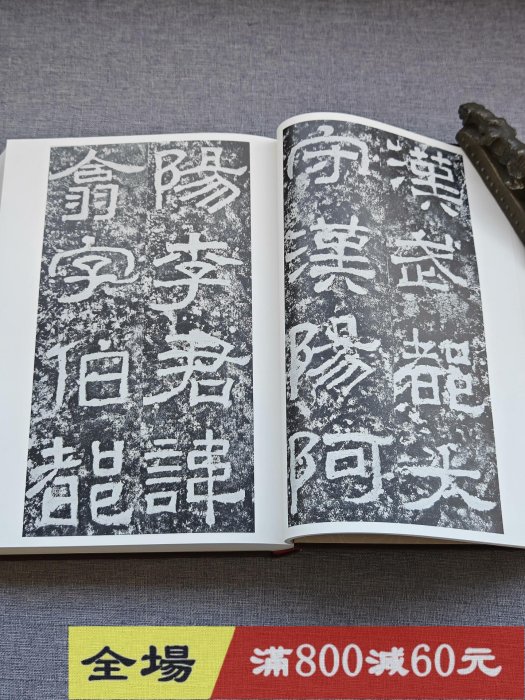 漢武都太
守漢陽阿
陽李君諱
翕字伯都
全場 滿800減60元